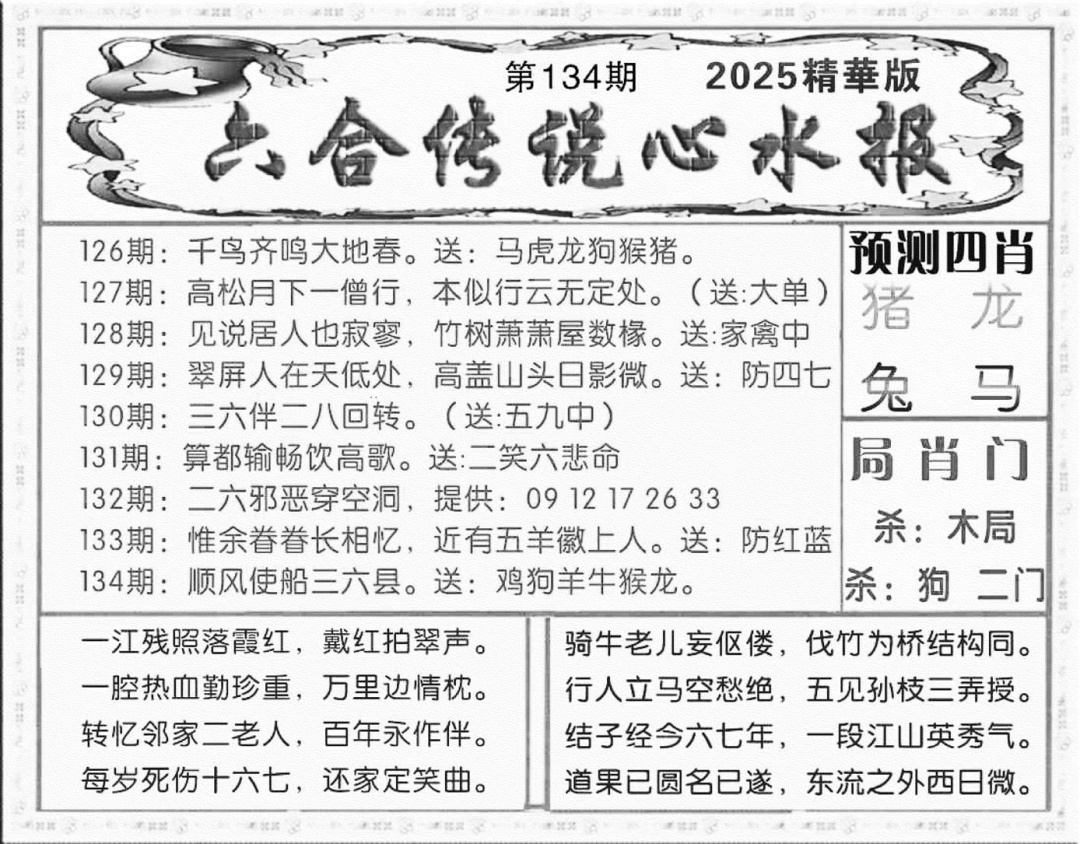 第134期 2025精華版
六合传说心水报
126期：千鸟齐鸣大地春。送：马虎龙狗猴猪。
127期：高松月下一僧行，本似行云无定处。（送:大单）
128期：见说居人也寂寥，竹树萧萧屋数椽。送:家禽中
129期：翠屏人在天低处，高盖山头日影微。送：防四七
130期：三六伴二八回转。（送:五九中）
131期：算都输畅饮高歌。送:二笑六悲命
132期：二六邪恶穿空洞，提供：09 12 17 26 33
133期：惟余眷眷长相忆，近有五羊徽上人。送：防红蓝
134期：顺风使船三六县。送：鸡狗羊牛猴龙。
预测四肖
猪 龙
兔 马
局肖门
杀：木局
杀：狗 二门
一江残照落霞红，戴红拍翠声。
一腔热血勤珍重，万里边情枕。
转忆邻家二老人，百年永作伴。
每岁死伤十六七，还家定笑曲。
骑牛老儿妄伛偻，伐竹为桥结构同。
行人立马空愁绝，五见孙枝三弄授。
结子经今六七年，一段江山英秀气。
道果已圆名已遂，东流之外西日微。